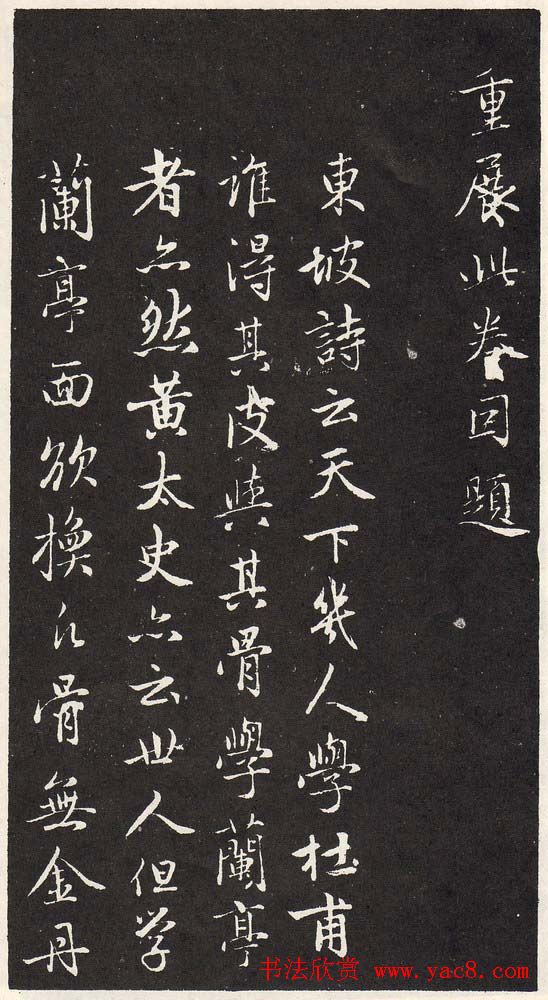 重展此卷因題
東坡詩云天下幾人學杜甫
誰得其皮與其骨學蘭亭
者亦然黃太史亦云世人但学
蘭亭面欲換凡骨無金丹
书法欣赏 www.yac8.com